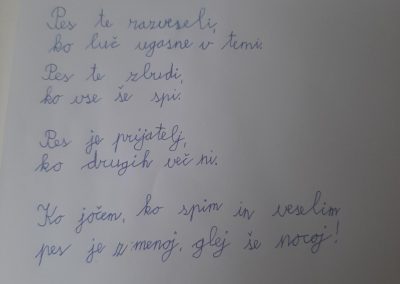 Pes te razveseli,
ko luč ugasne v temi.
Pes te zbudi,
ko vse še spi.
Pes je prijatelj,
ko drugih več ni.
Ko jočem, ko spim in veselim
pes je z menoj, glej še nocoj!